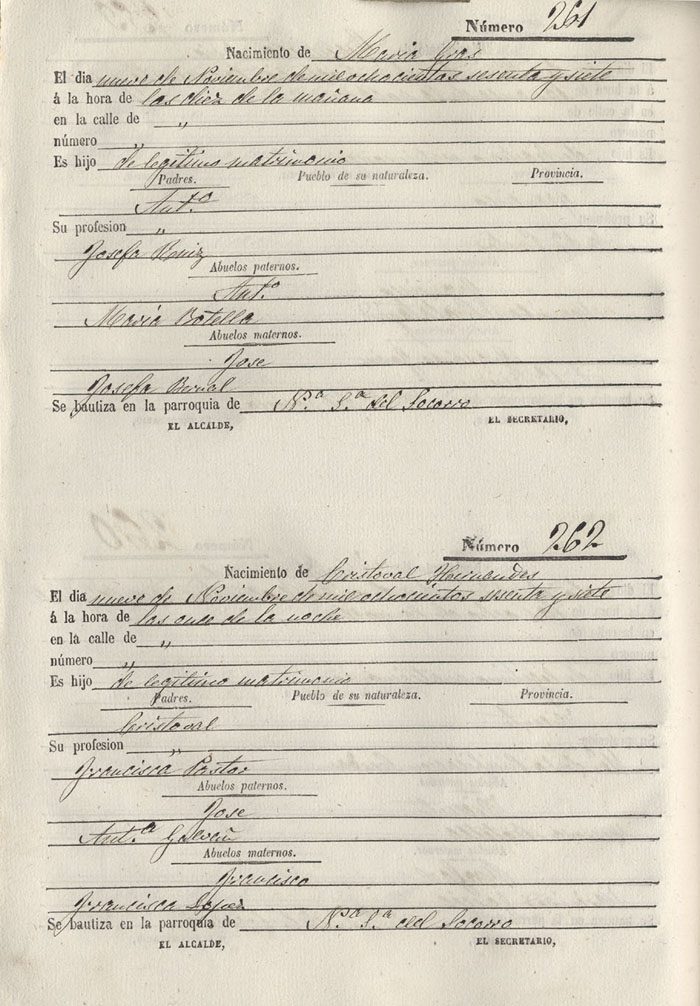 Número 261
Nacimiento de Maria Gras
El dia nueve de Noviembre de mil ochocientos sesenta y siete
á la hora de las diez de la mañana
en la calle de „
número „
Es hijo de legitimo matrimonio
Padres. Pueblo de su naturaleza. Provincia.
Ant.º
Su profesion „
Josefa Ruiz
Abuelos paternos.
Ant.º
Maria Botella
Abuelos maternos.
Jose
Josefa Bernal
Se bautiza en la parroquia de N.ª S.ª del Socorro
EL ALCALDE, EL SECRETARIO,
Número 262
Nacimiento de Cristoval Hernandes
El dia nueve de Noviembre de mil ochocientos sesenta y siete
á la hora de las once de la noche
en la calle de „
número „
Es hijo de legitimo matrimonio
Padres. Pueblo de su naturaleza. Provincia.
Cristoval
Su profesion „
Francisca Pastor
Abuelos paternos.
Jose
Ant.ª Galvañ
Abuelos maternos.
Francisco
Francisca Lopez
Se bautiza en la parroquia de N.ª S.ª del Socorro
EL ALCALDE, EL SECRETARIO,